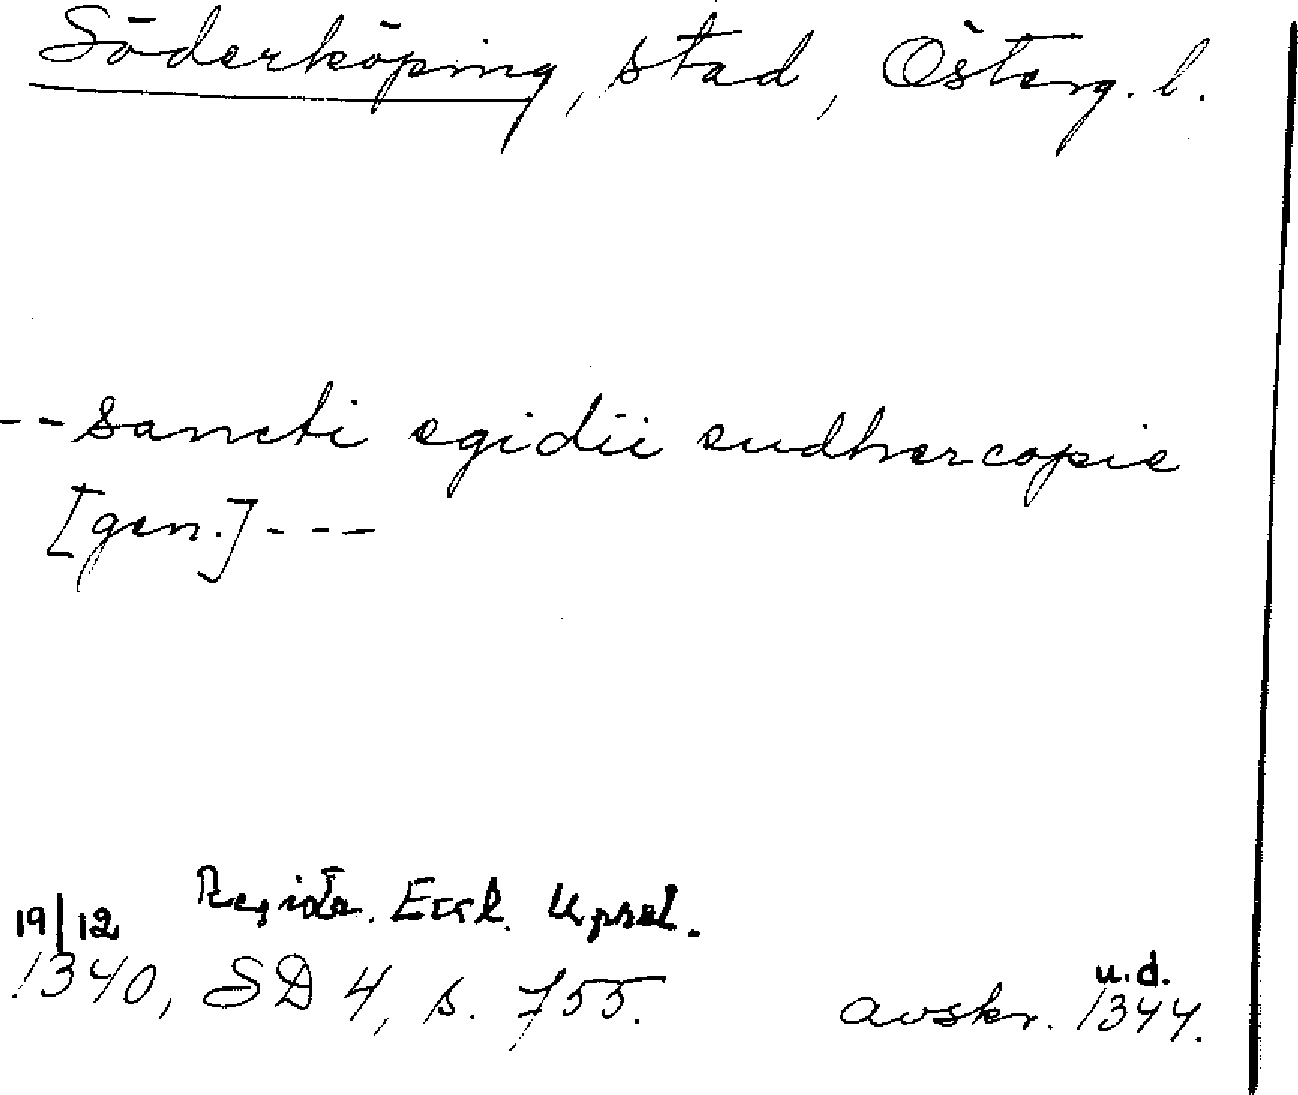 Söderköping, stad, Österg. l.
-- sancti egidii sudhercopie
[gen.] ---
19/12 Registr. Eccl. Upsal.
1340, SD 4, s. 755. avskr. u.d. 1344.